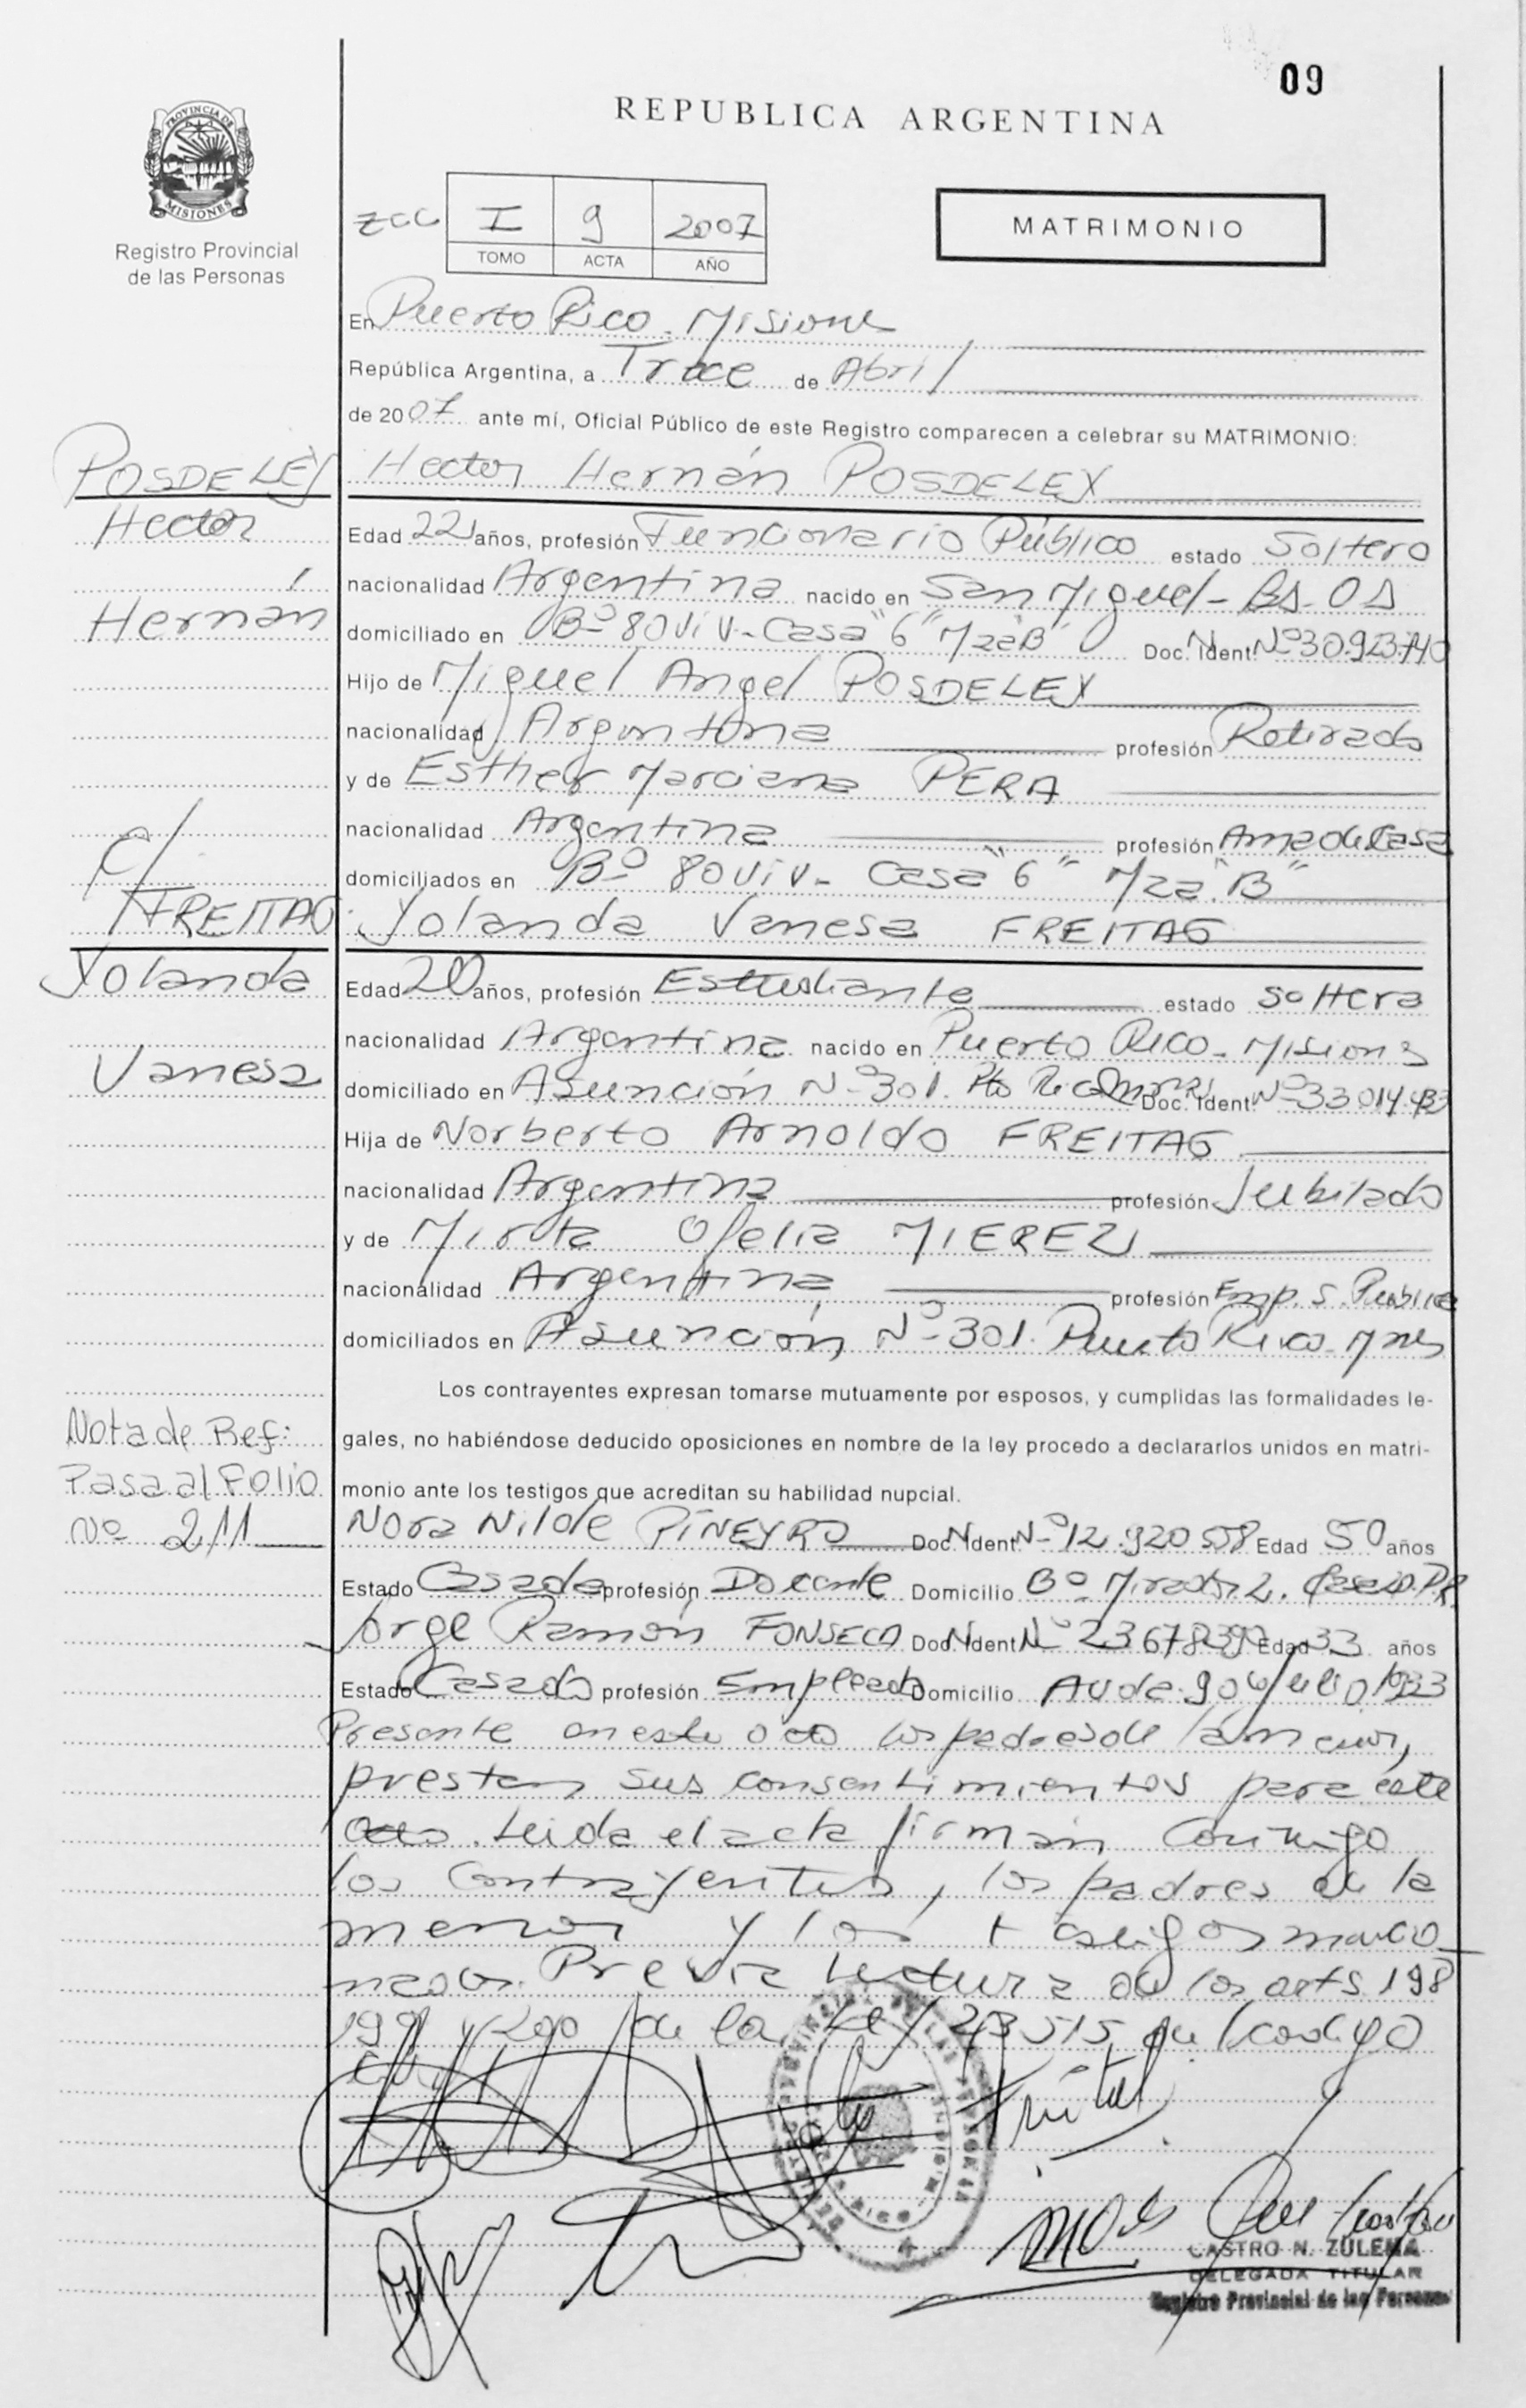 09
REPUBLICA ARGENTINA
PROVINCIA DE
MISIONES
Registro Provincial
de las Personas
ZCC I 9 2007
TOMO ACTA AÑO
MATRIMONIO
En Puerto Rico - Misiones
República Argentina, a Trece de Abril
de 2007 ante mí, Oficial Público de este Registro comparecen a celebrar su MATRIMONIO:
POSDELEY Hector Hernán POSDELEY
Hector
Edad 22 años, profesión Funcionario Público estado Soltero
nacionalidad Argentina nacido en San Miguel - Bs. As
Hernán domiciliado en Bº 80 Viv. - Casa "6" Mza "B" Doc. N. Ident. Nº 30.923.740
Hijo de Miguel Angel POSDELEY
nacionalidad Argentina profesión Retirado
y de Esther Marciana PERA
c/ nacionalidad Argentina profesión Ama de Casa
domiciliados en Bº 80 Viv - Casa "6" Mza. "B"
FREITAG Yolanda Vanesa FREITAG
Yolanda Edad 20 años, profesión Estudiante estado Soltera
nacionalidad Argentina nacido en Puerto Rico - Misiones
Vanesa domiciliado en Asunción Nº 301. Pto Rico Doc. Ident. Nº 33 014
Hija de Norberto Arnoldo FREITAG
nacionalidad Argentina profesión Jubilado
y de Mirta Ofelia MIEREZ
nacionalidad Argentina profesión Emp. S. Publica
domiciliados en Asunción Nº 301. Puerto Rico - Mnes
Los contrayentes expresan tomarse mutuamente por esposos, y cumplidas las formalidades le-
Nota de Ref: gales, no habiéndose deducido oposiciones en nombre de la ley procedo a declararlos unidos en matri-
Pasa al Folio monio ante los testigos que acreditan su habilidad nupcial.
Nº 211 Nora Nilde PIÑEYRO Doc. N. Ident. Nº 12.920 558 Edad 50 años
Estado Casada profesión Docente Domicilio Bº Mirador 2.
Jorge Ramón FONSECA Doc. N. Ident. Nº Edad 33 años
Estado Casado profesión Empleado Domicilio Avda. 9 de Julio 1933
Presente en este acto los padres de la menor,
prestan sus consentimientos para este
acto. Leida el acta firman conmigo
los contrayentes, los padres de la
menor y los testigos mencio_
nados. Previa lectura de los arts. 198
199 y 200 de la Ley 23515 del codigo
Civil
CASTRO N. ZULEMA
DELEGADA TITULAR
Registro Provincial de las Personas